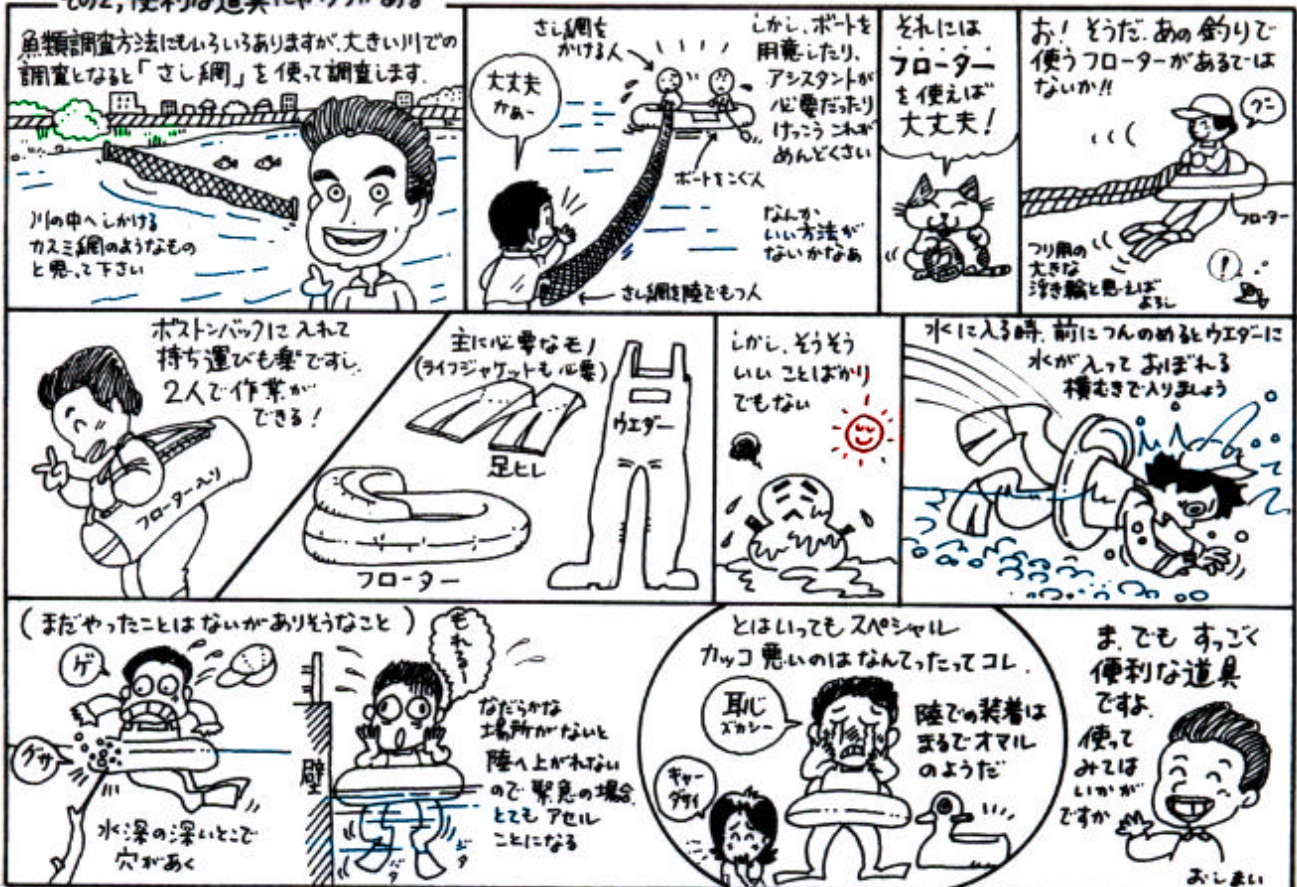 その2,便利な道具にゃウラがある
魚類調査方法にもいろいろありますが、大きい川での
調査となると「さし網」を使って調査します.
川の中へしかける
カスミ網のようなもの
と思って下さい
さし網を
かける人
大丈夫
かぁー
しかし、ボートを
用意したり、
アシスタントが
必要だったり
けっこうこれが
めんどくさい
ボートをこぐ人
なんか
いい方法が
ないかなあ
さし網を陸でもつ人
それには
フローター
を使えば
大丈夫!
お!そうだ.あの釣りで
使うフローターがあるでは
ないか!!
フローター
フリ用の
大きな
浮き輪と思えば
よろし
!
ボストンバックに入れて
持ち運びも楽ですし.
2人で作業が
できる!
フローター入り
主に必要なモノ
(ライフジャケットも必要)
足ヒレ
ウエダー
フローター
しかし、そうそう
いいことばかり
でもない
水に入る時、前につんのめるとウエダーに
水が入っておぼれる
横むきで入りましょう
(まだやったことはないがありそうなこと)
ゲ
グサ
水深の深いとこで
穴があく
壁
もれるー!
なだらかな
場所がないと
陸へ上がれない
ので緊急の場合.
とてもアセル
ことになる
バタ
バタ
とはいってもスペシャル
カッコ悪いのはなんてったってコレ.
恥
ズカシー
キャー
ダサイ
陸での装着は
まるでオマル
のようだ
ま、でもすっごく
便利な道具
ですよ.
使って
みては
いかが
ですか
おしまい